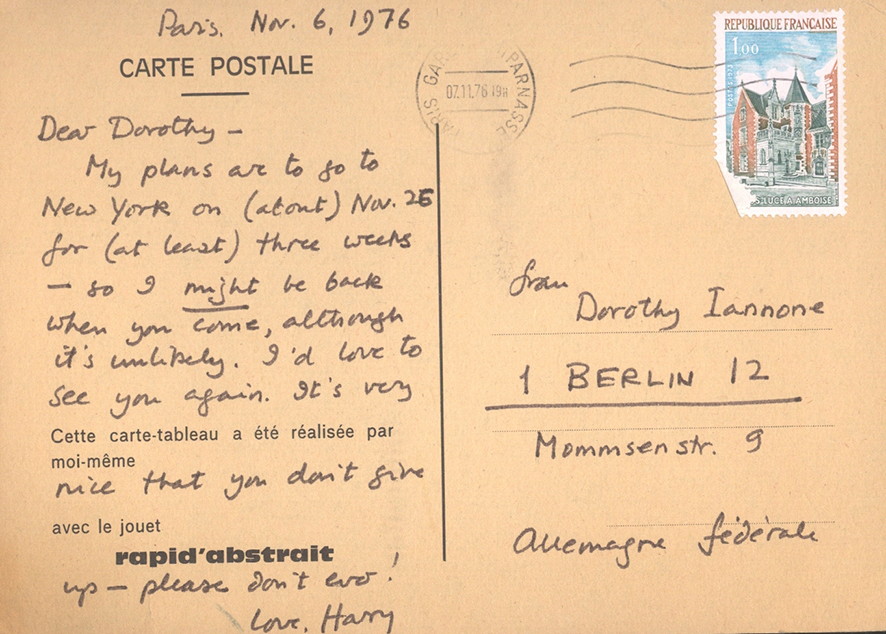 Paris, Nov. 6, 1976
CARTE POSTALE
Dear Dorothy —
My plans are to go to
New York on (about) Nov. 26
for (at least) three weeks
— so I might be back
when you come, although
it's unlikely. I'd love to
see you again. It's very
Cette carte-tableau a été réalisée par
moi-même
nice that you don't give
avec le jouet
rapid'abstrait
up — please don't ever!
Love, Harry
PARIS GARE MONTPARNASSE
07.11.76 19H
REPUBLIQUE FRANÇAISE
1,00
POSTES 1973
S LUCE A AMBOISE
frau
Dorothy Iannone
1 BERLIN 12
Mommsenstr. 9
Allemagne fédérale